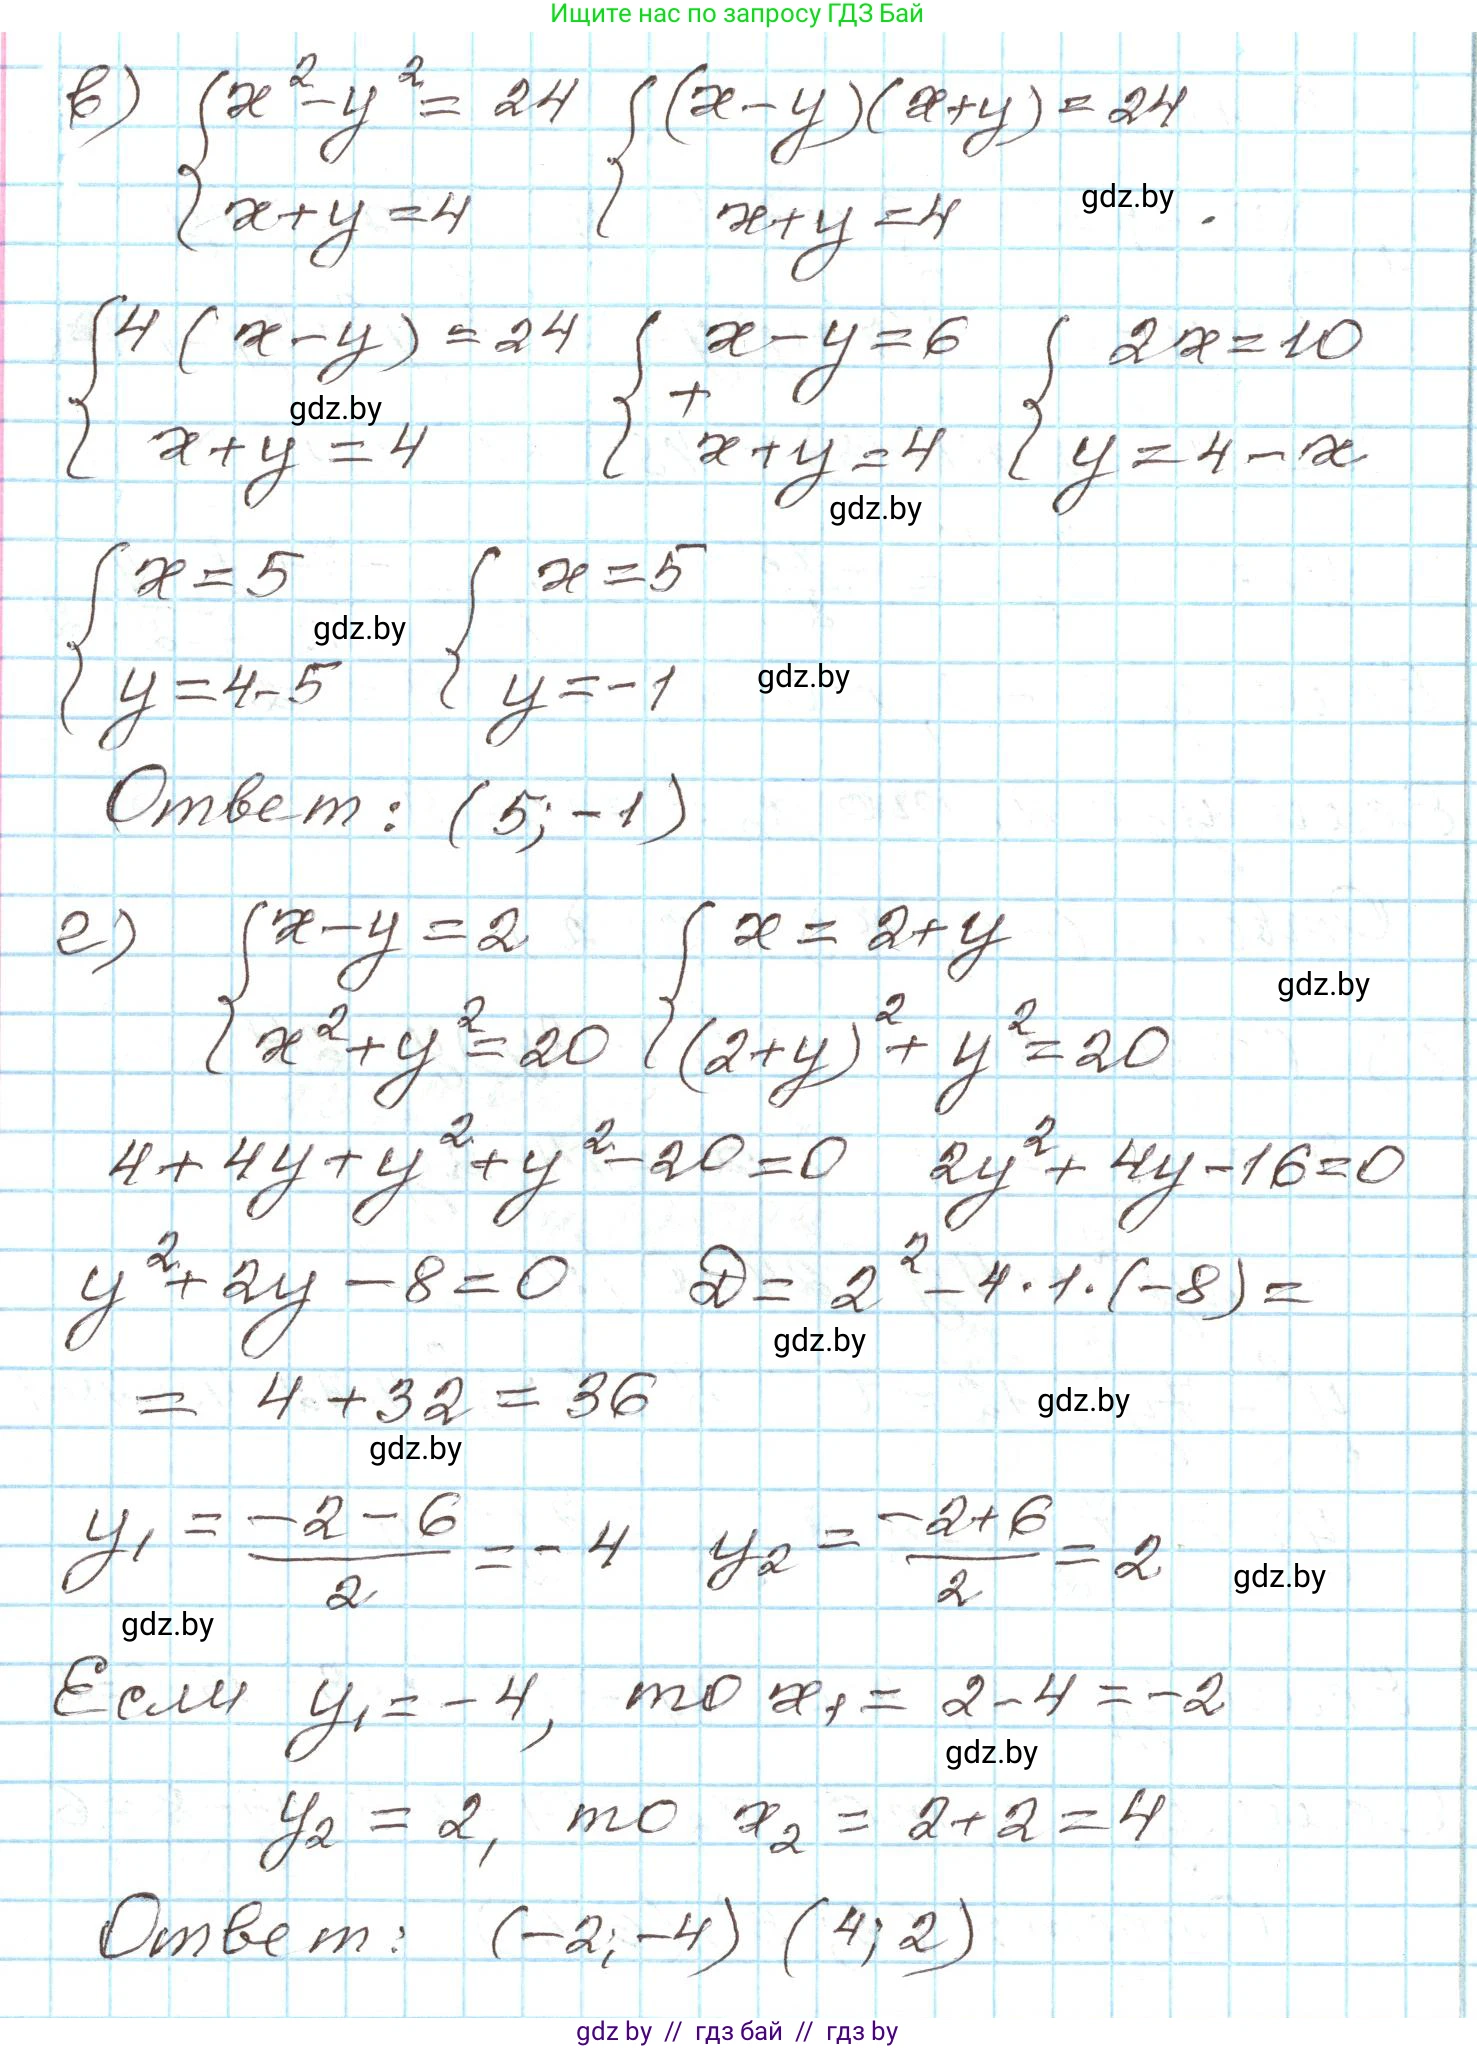 Ищите нас по запросу ГДЗ Бай
в) { x² - y² = 24 { (x - y)(x + y) = 24
x + y = 4 x + y = 4 .
gdz.by
{ 4(x - y) = 24 { x - y = 6 { 2x = 10
+
gdz.by
x + y = 4 x + y = 4 y = 4 - x
gdz.by
{ x = 5 { x = 5
gdz.by
y = 4 - 5 y = -1
gdz.by
Ответ: (5; -1)
г) { x - y = 2 { x = 2 + y
gdz.by
x² + y² = 20 (2 + y)² + y² = 20
4 + 4y + y² + y² - 20 = 0 2y² + 4y - 16 = 0
y² + 2y - 8 = 0 D = 2² - 4 · 1 · (-8) =
gdz.by
= 4 + 32 = 36
gdz.by
gdz.by
y₁ = (-2 - 6)/2 = -4 y₂ = (-2 + 6)/2 = 2
gdz.by
gdz.by
Если y₁ = -4, то x₁ = 2 - 4 = -2
gdz.by
y₂ = 2, то x₂ = 2 + 2 = 4
Ответ: (-2; -4) (4; 2)
gdz by // гдз бай // гдз by